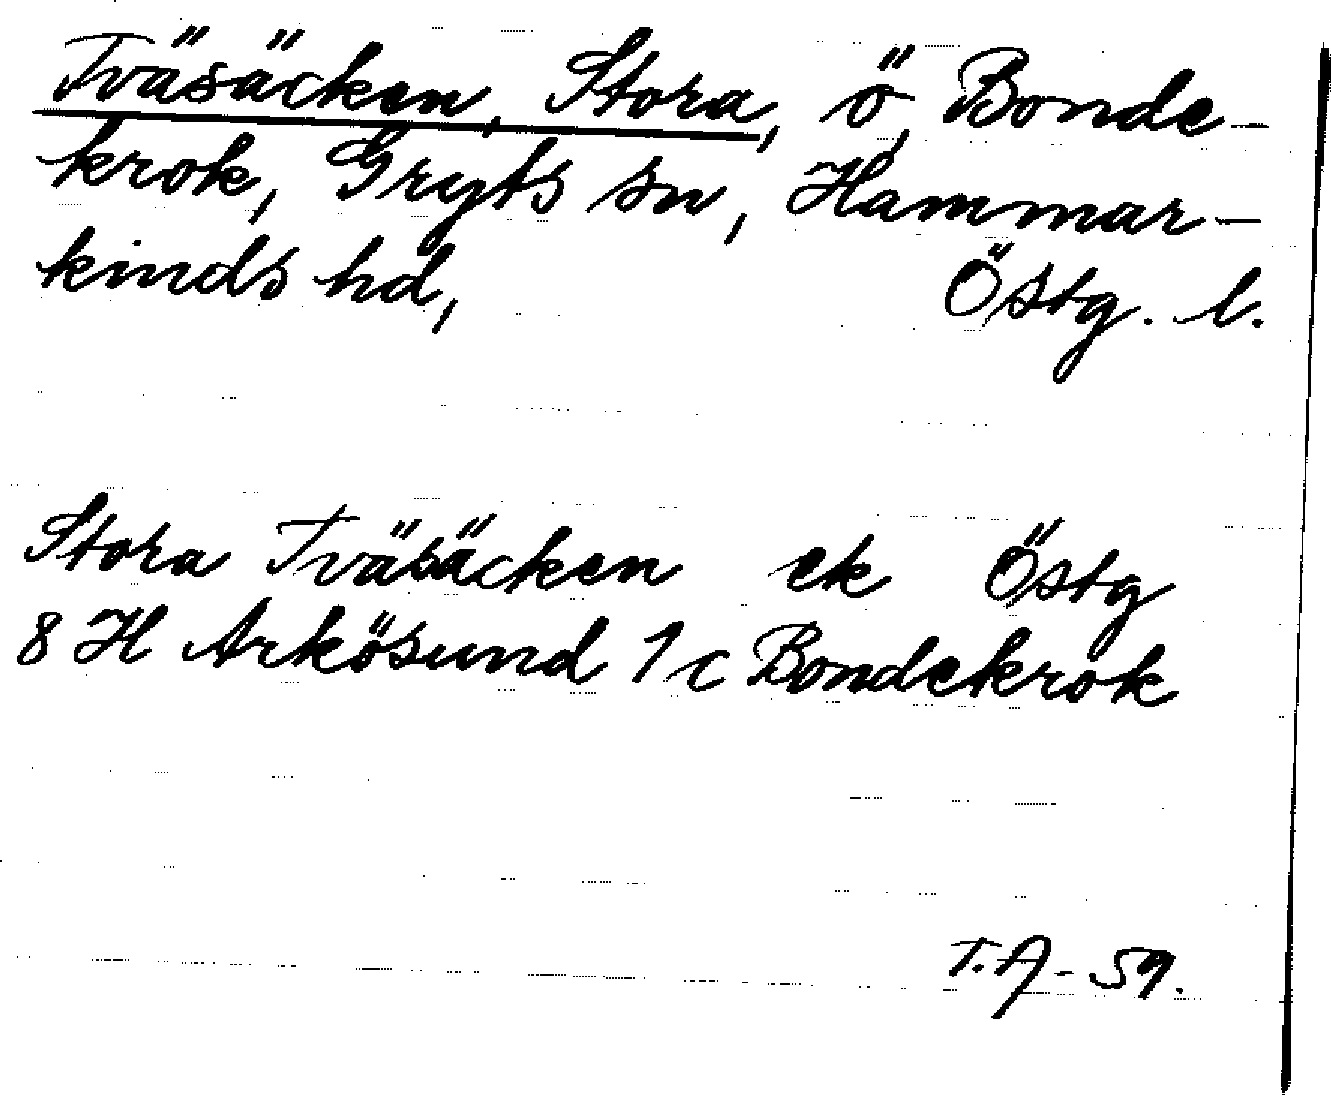 Tväsäcken, Stora, ö, Bonde-
krok, Gryts sn, Hammar-
kinds hd, Östg. l.
Stora Tväsäcken ek Östg
8 H Arkösund 1 c Bondekrok
T. A - 59.